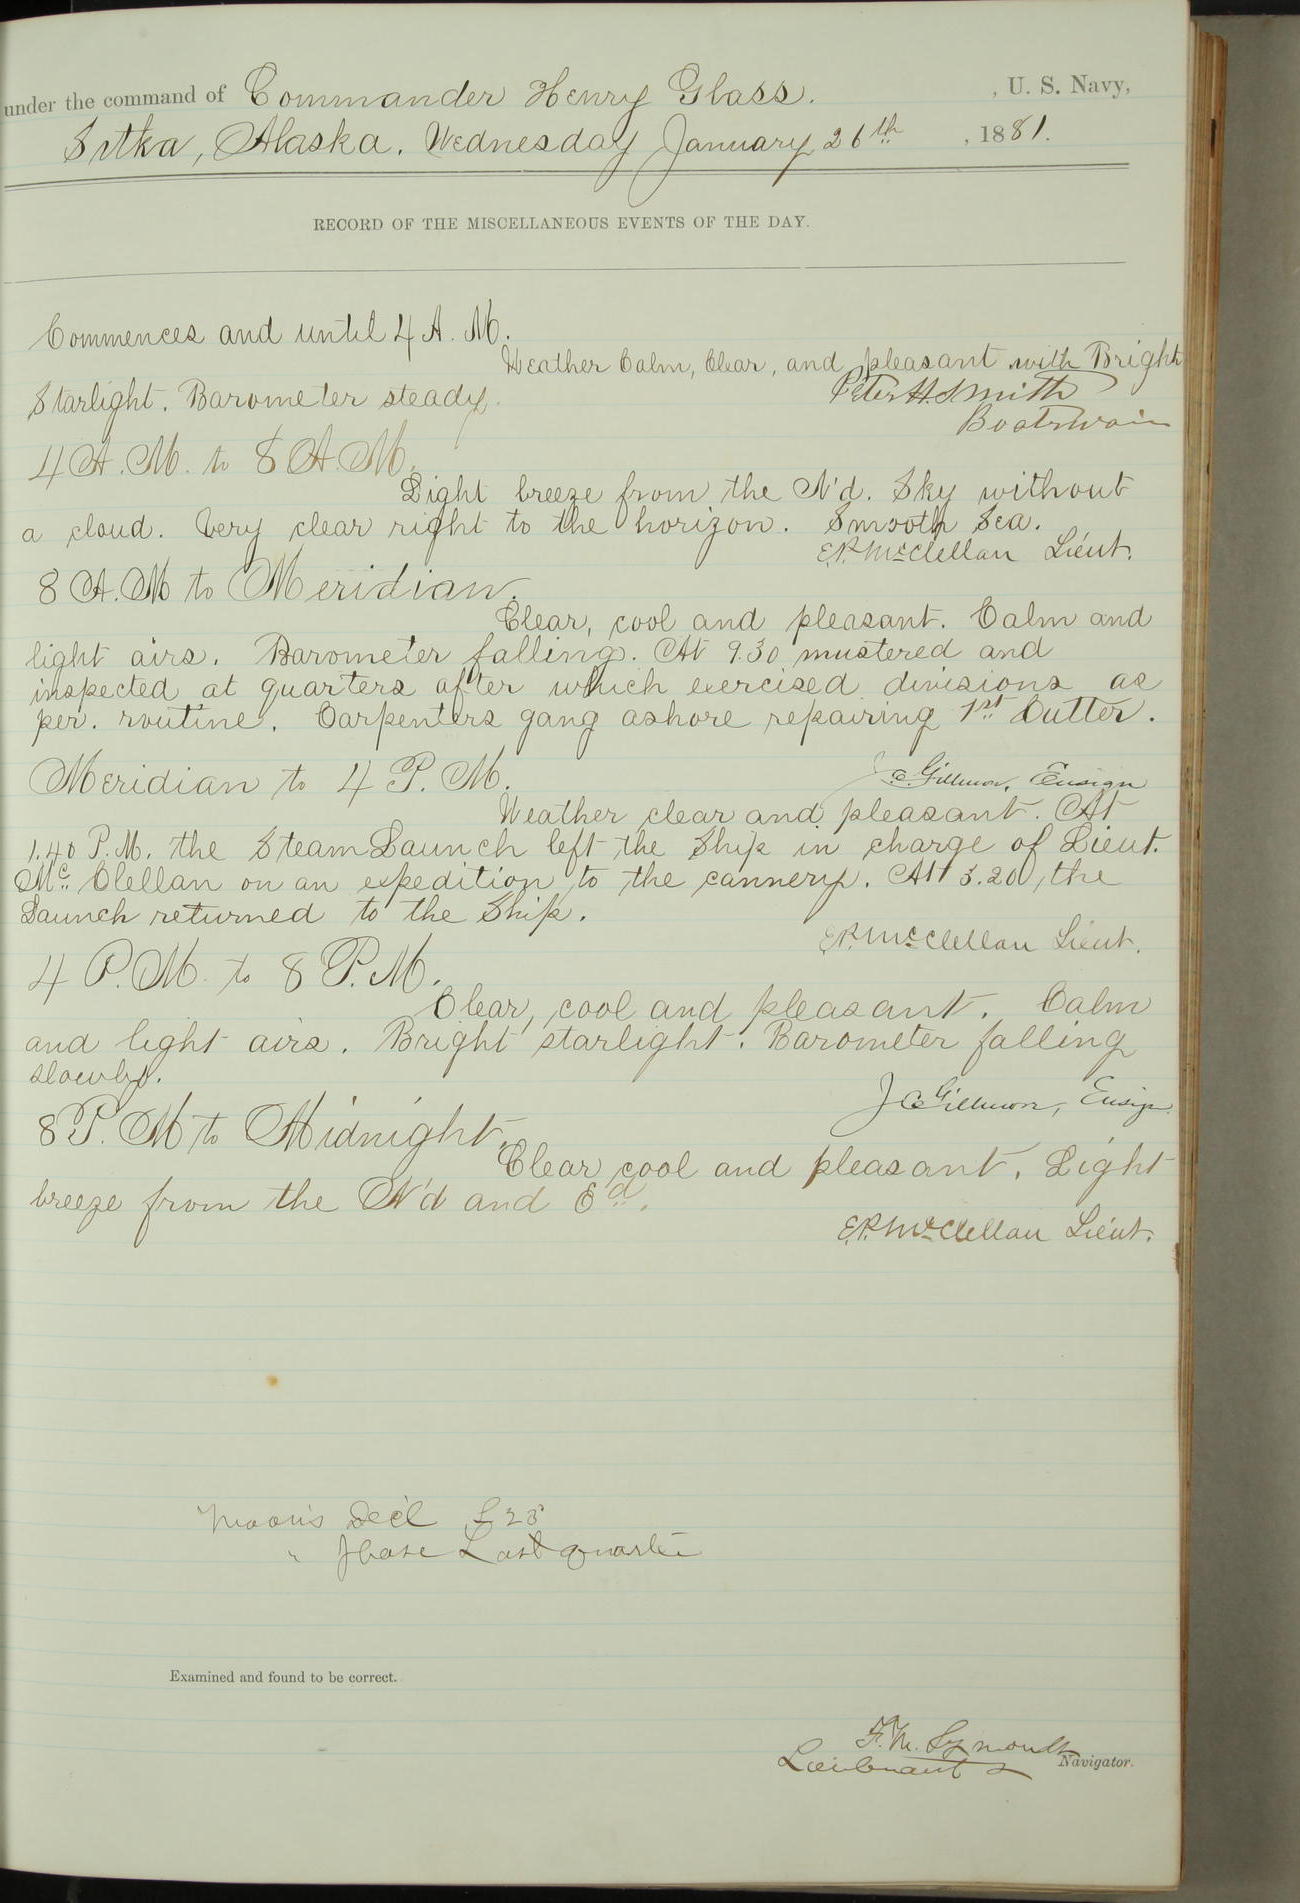 under the command of Commander Henry Glass. , U. S. Navy,
Sitka, Alaska. Wednesday January 26th , 1881.
RECORD OF THE MISCELLANEOUS EVENTS OF THE DAY.
Commences and until 4 A. M.
Weather Calm, Clear, and pleasant with Bright
Starlight. Barometer steady.
Peter H. Smith
Boatswain
4 A. M. to 8 A. M.
Light breeze from the N'd. Sky without
a cloud. Very clear right to the horizon. Smooth Sea.
E.P. McClellan Lieut.
8 A. M to Meridian.
Clear, cool and pleasant. Calm and
light airs. Barometer falling. At 9.30 mustered and
inspected at quarters after which exercised divisions as
per. routine. Carpenters gang ashore repairing 1st Cutter.
J C Gillmor, Ensign
Meridian to 4 P. M.
Weather clear and pleasant. At
1.40 P.M. the Steam Launch left the Ship in charge of Lieut.
Mc Clellan on an expedition to the cannery. At 3.20, the
Launch returned to the Ship.
E.P. McClellan Lieut.
4 P. M. to 8 P. M.
Clear, cool and pleasant. Calm
and light airs. Bright starlight. Barometer falling
slowly.
J C Gillmor, Ensign.
8 P. M to Midnight.
Clear, cool and pleasant. Light
breeze from the N'd and Ed.
E.P. McClellan Lieut.
Moon's Dec'l S 23°
" Phase Last quarter
Examined and found to be correct.
F. M. Symonds
Lieutenant Navigator.